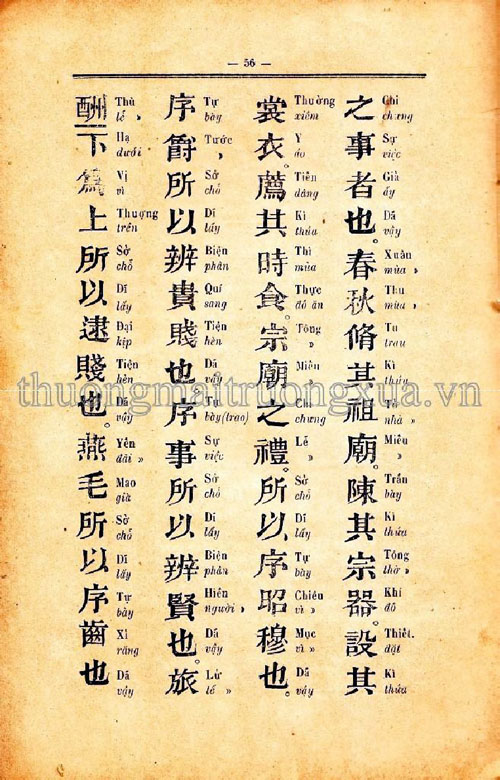 — 56 —
之事者也。春秋脩其祖廟。陳其宗器。設其
Chi
chưng
Sự
việc
Giả
ấy
Dã
vậy
Xuân
mùa »
Thu
mùa »
Tu
trau
Kì
thửa
nhà »
Miếu
»
Trần
bày
Kì
thửa
Tông
thờ »
Khí
đồ
Thiết.
đặt
Kì
thửa
裳衣。薦其時食。宗廟之禮。所以序昭穆也。
Thường
xiêm
Y
áo
Tiến
dâng
Kì
thửa
Thì
mùa
Thực
đồ ăn
Tông
»
Miếu
»
Chi
chưng
Lễ
»
Sở
chỗ
Dĩ
lấy
Tự
bày
Chiêu
vì »
Mục
vì »
Dã
vậy
序爵所以辨貴賤也序事所以辨賢也。旅
Tự
bày
Tước
»
Sở
chỗ
Dĩ
lấy
Biện
phân
Quí
sang
Tiện
hèn
Dã
vậy
Tự
bày(trao)
Sự
việc
Sở
chỗ
Dĩ
lấy
Biện
phân
Hiền
người »
Dã
vậy
Lữ
lễ »
酬下爲上所以逮賤也。燕毛所以序齒也
Thù
lễ »
Hạ
dưới
Vị
vì
Thượng
trên
Sở
chỗ
Dĩ
lấy
Đại
kịp
Tiện
hèn
Dã
vậy
Yến
đãi »
Mao
già
Sở
chỗ
Dĩ
lấy
Tự
bày
Xỉ
răng
Dã
vậy
thuongmaitruongxua.vn